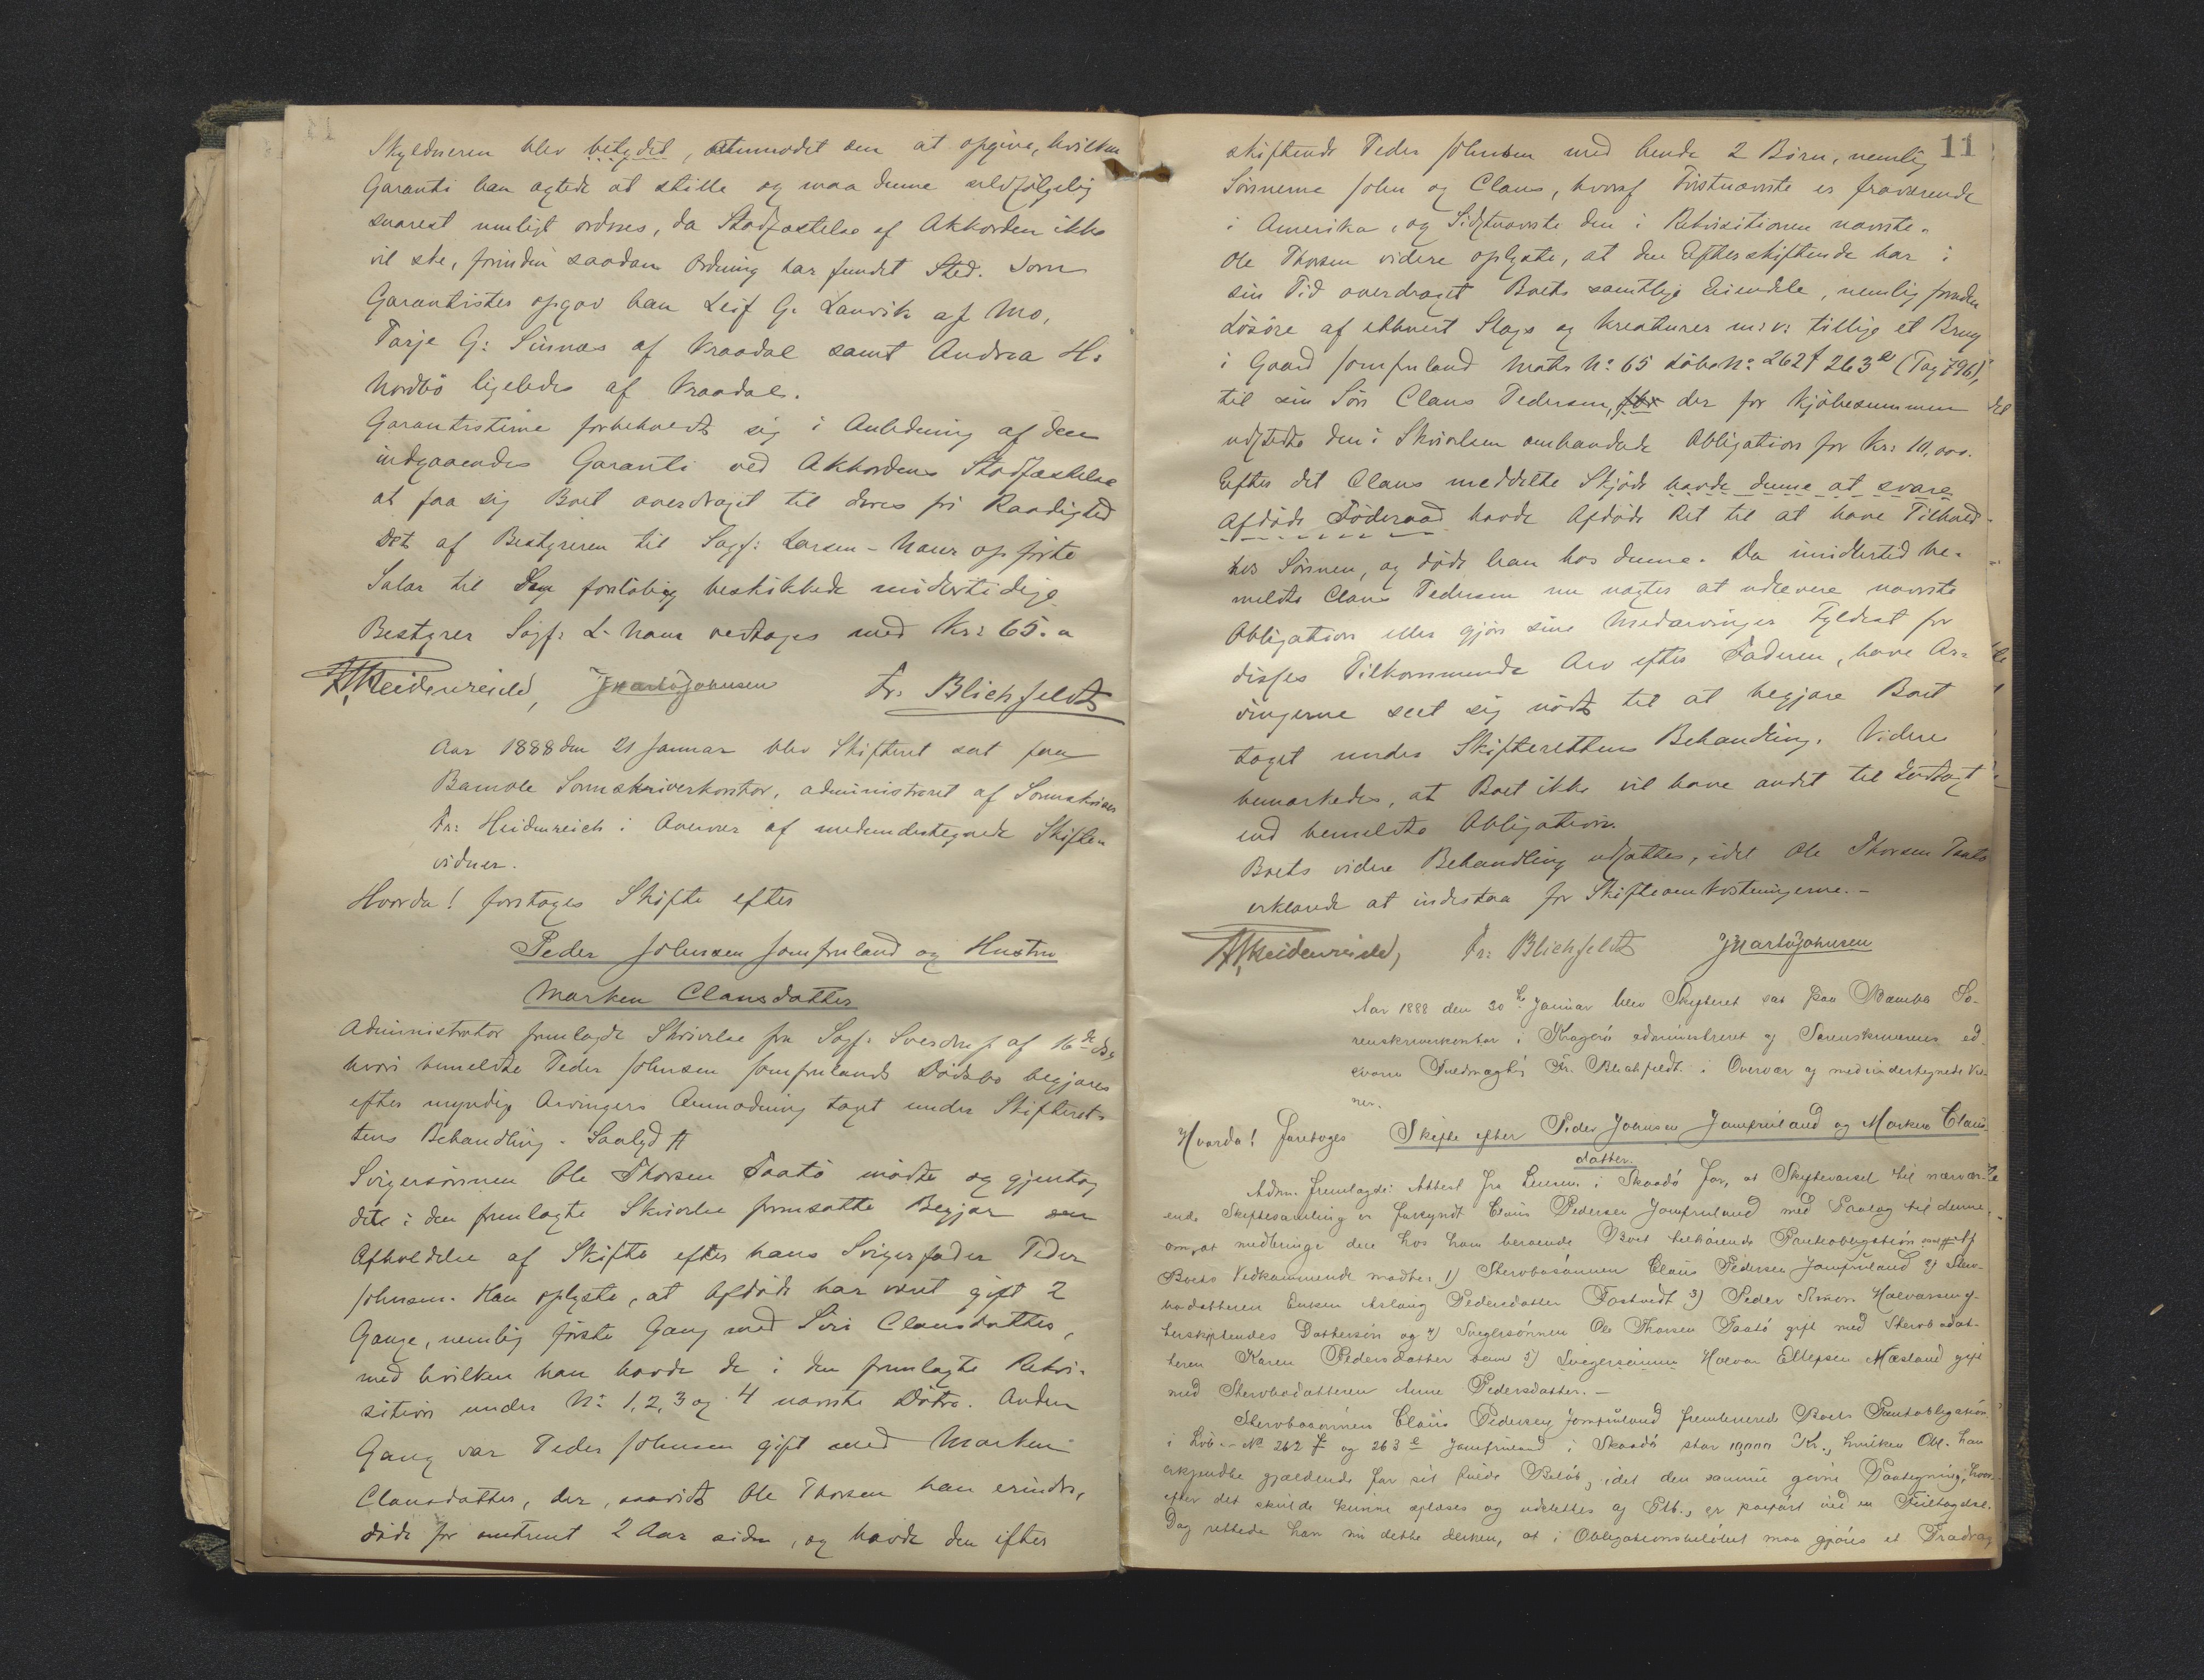 Skyldneren blev betydet, atmmodet om at opgive, hvilken
Garanti han agtede at stille og maa denne selvfølgelig
snarest muligt ordnes, da Stadfæstelse af Akkorden ikke
vil ske, forinden saadan Ordning har fundet Sted. Som
Garantister opgav han Leif G. Lanvik af Mo,
Tarje G: Sinnæs af Kraadal samt Andrea H:
Nordbö ligeledes af Kraadal.
Garantisterne forbeholdt sig i Anledning af den
indgaaendes Garanti ved Akkordens Stadfæstelse
at faa sig Boet overdraget til deres fri Raadighed
Det af Bestyreren til Sagf: Larsen-Naur opførte
Salær til den foreløbig beskikkede midlertidige
Bestyrer Sagf: L. Naur vedtages med Kr: 65.
Heidenreich, J Martö Johnsen Fr: Blichfeldt
Aar 1888 den 21 Januar blev Skifteret sat paa
Bamble Sorenskriverkontor, administreret af Sorenskriver
Fr: Heidenreich i Overvær af medundertegnede Skifte-
vidner.
Hvorda! foretoges Skifte efter
Peder Johnsen Jomfruland og Hustru
Marken Clausdatter
Administrator fremlagde Skrivelse fra Sagf: Sverdrup af 16de ds,
hvori bemeldte Peder Johnsen Jomfrulands Dødsbo begjæres
efter myndige Arvingers Anmodning taget under Skifteret-
tens Behandling. Saalyd #
Svigersönnen Ole Thorsen Taatö mødte og gjentog
det i den fremlagte Skrivelse fremsatte Begjær om
Afholdelse af Skifte efter hans Svigerfader Peder
Johnsen. Han oplyste, at Afdöde har været gift 2
Gange, nemlig første Gang med Siri Clausdatter,
med hvilken han havde de i den fremlagte Rekvi-
sition under No 1, 2, 3 og 4 nævnte Døtre. Anden
Gang var Peder Johnsen gift med Marken
Clausdatter, der, saavidt Ole Thorsen kan erindre,
döde for omtrent 2 Aar siden, og havde den efter
11
skiftende Peder Johnsen med hende 2 Börn, nemlig
Sönnerne John og Claus, hvoraf Förstnævnte er fraværende
i Amerika, og Sidstnævnte den i Rekvisitionen nævnte.
Ole Thorsen videre oplyste, at den Efterskiftende har i
sin Tid overdraget Boets samtlige Eiendele, nemlig foruden
Lösöre af ethvert Slags og Kreaturer m: v: tillige et Brug
i Gaard Jomfruland Matr: No: 65 Löbe No: 262f 263e (Tag 796),
til sin Sön Claus Pedersen, for der for Kjöbesummen
udstedte den i Skrivelsen omhandlede Obligation for Kr: 10,000.
Efter det Claus meddelte Skjøde havde denne at svare
Afdöde Föderaad havde Afdöde Ret til at have Tilhold
hos Sönnen, og döde han hos denne. Da imidlertid be-
meldte Claus Pedersen nu nægter at udlevere nævnte
Obligation eller gjöre sine Medarvinger Fyldest for
disses Tilkommende Arv efter Faderen, have Ar-
vingerne seet sig nödt til at begjære Boet
taget under Skifterettens Behandling. Videre
bemærkedes, at Boet ikke vil have andet til Indtægt
end bemeldte Obligation.
Boets videre Behandling udsattes, idet Ole Thorsen Taatö
erklærede at indestaa for Skifteomkostningerne.-
Heidenreich, Fr: Blichfeldt J Martö Johnsen
Aar 1888 den 30te Januar blev Skifteret sat paa Bamble So-
renskriverkontor i Kragerö administreret af Sorenskriverens ed-
svorne Fuldmægtig Fr. Blichfeldt i Overvær af medundertegnede Vid-
ner.
Hvorda! foretoges Skifte efter Peder Johnsen Jomfruland og Marken Claus-
datter.
Adm. fremlagde Attest fra Lensm. i Skaadö for, at Skiftevarsel til nærvær-
ende Skiftesamling er forkyndt Claus Pedersen Jomfruland med Paalæg til denne
om, at medbringe den hos ham beroende Boet tilhörende Panteobligation. Af
Boets Vedkommende mødte: 1) Stervbosönnen Claus Pedersen Jomfruland 2) Sterv-
bodatteren Enken Aslaug Pedersdatter Fostvedt 3) Peder Simon Halvorsen, ef-
terskiftendes Dattersön og 4) Svigersönnen Ole Thorsen Taatö gift med Stervbodat-
teren Karen Pedersdatter samt 5) Svigersönnen Halvor Ellefsen Næsland gift
med Stervbodatteren Anne Pedersdatter. -
Stervbosönnen Claus Pedersen Jomfruland fremleverede Boets Panteobligation
i Löb.- No 262 f og 263 e Jomfruland i Skaadö stor 10,000 Kr., hvilken Obl. han
erkjendte gjældende for sit fulde Beløb, idet den samme givne Paategning, hvor-
efter det skulde kunne aflæses og udslettes af Ptb., er paaført ved en Feiltagelse.
Dog rettede han nu dette derhen, at i Obligationsbelöbet maa gjöres et Fradrag